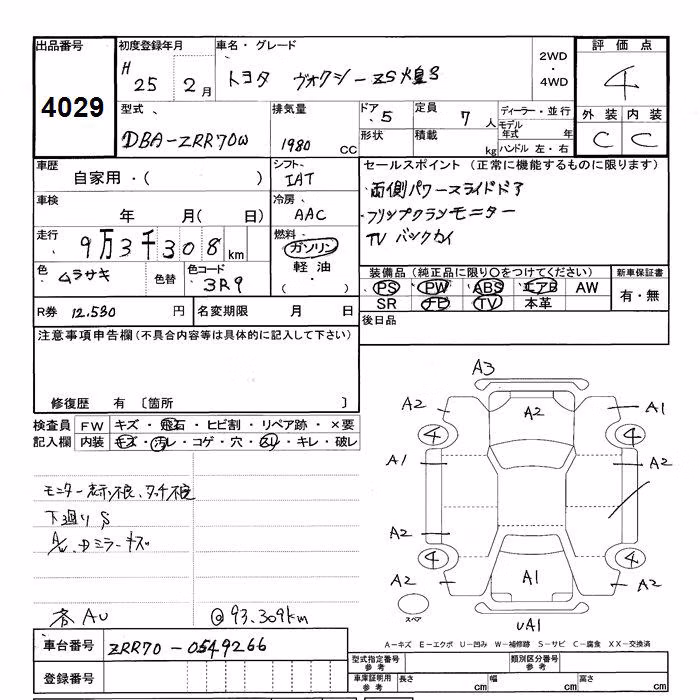 出品番号
4029
初度登録年月
H 25年 2月
車名・グレード
トヨタ ヴォクシー ZS煌3
2WD
・
4WD
評価点
4
外装 内装
C C
型式
DBA-ZRR70W
排気量
1980 CC
ドア 5
形状
定員 7人
積載 kg
ディーラー・並行
モデル年式 年
ハンドル 左・右
車歴
自家用・( )
シフト
IAT
セールスポイント (正常に機能するものに限ります)
両側パワースライドドア
フリップダウンモニター
TV バックカメ
車検
年 月( 日)
冷房
AAC
走行
9万3千308km
燃料
ガソリン
軽油・
( )
色
ムラサキ
色替
色コード
3R9
装備品 (純正品に限り○をつけてください)
PS PW ABS エアB AW
SR ナビ TV 本革
新車保証書
有・無
R券 12.530 円
名変期限 月 日
後日品
注意事項申告欄(不具合内容等は具体的に記入して下さい)
修復歴 有 〔箇所 〕
検査員記入欄
FW キズ・飛石・ヒビ割・リペア跡・×要
内装 キズ・汚レ・コゲ・穴・スレ・キレ・破レ
モニター表示不良、タッチ不良
下廻り S
A/W、Dミラーキズ
各AU
@93.309km
A3
A2 A2 A1
4 4
A1 A2
A2
4 4
A2 A1 A2
スペア
UA1
A-キズ E-エクボ U-凹み W-補修跡 S-サビ C-腐食 XX-交換済
車台番号
ZRR70-0549266
登録番号
型式指定番号 参考
類別区分番号 参考
車庫証明用 参考
長さ cm
幅 cm
高さ cm